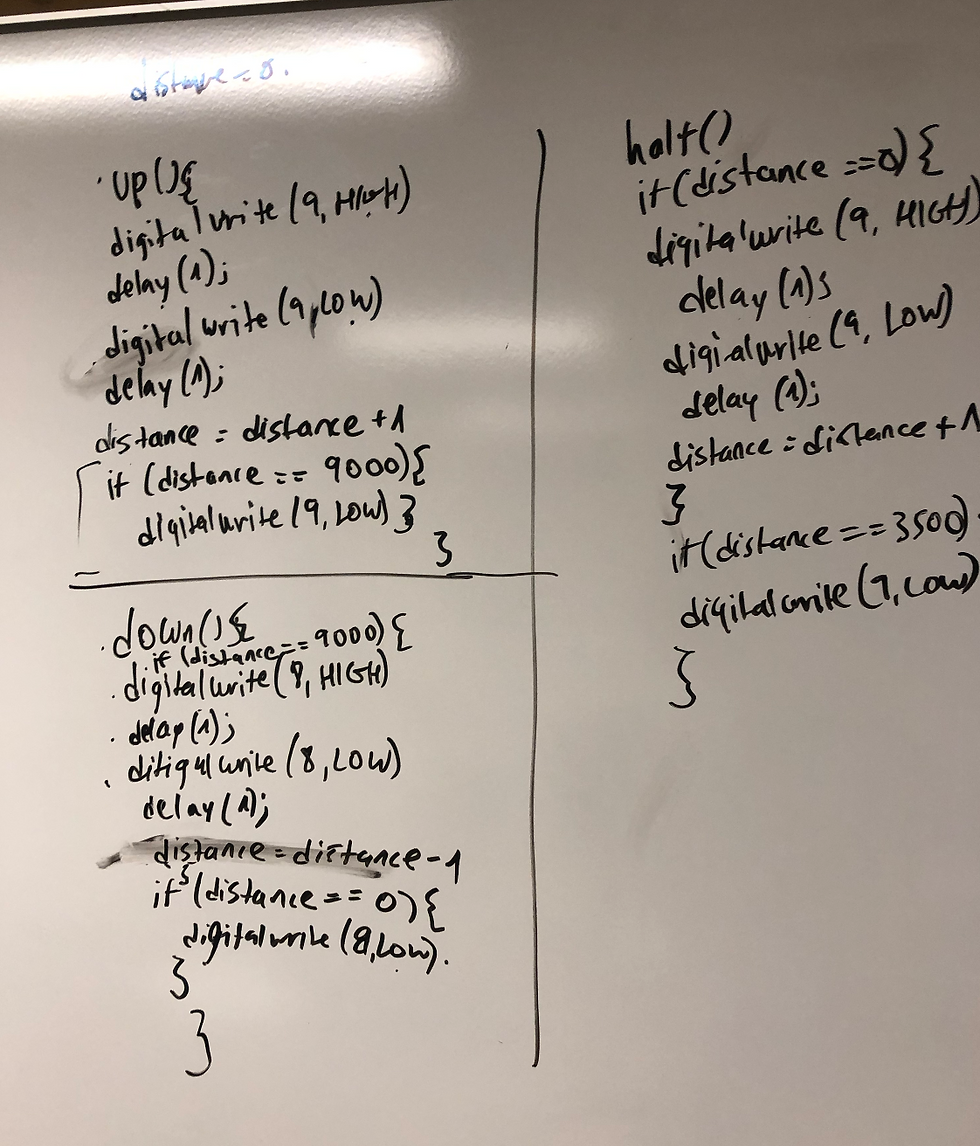 distance = 0.
up(){
digitalwrite (9, HIGH)
delay(1);
digital write (9, LOW)
delay(1);
distance = distance +1
if (distance == 9000){
digitalwrite (9, LOW) }
}
down(){
if (distance == 9000) {
digitalwrite (8, HIGH)
delay(1);
ditigal write (8, LOW)
delay(1);
distance = distance -1
if (distance == 0) {
digitalwrite (8, LOW).
}
}
half()
if(distance ==0) {
digitalwrite (9, HIGH)
delay (1);
digialwrite (9, LOW)
delay (1);
distance = distance + 1
}
if(distance == 3500)
digitalwrite (9, LOW)
}